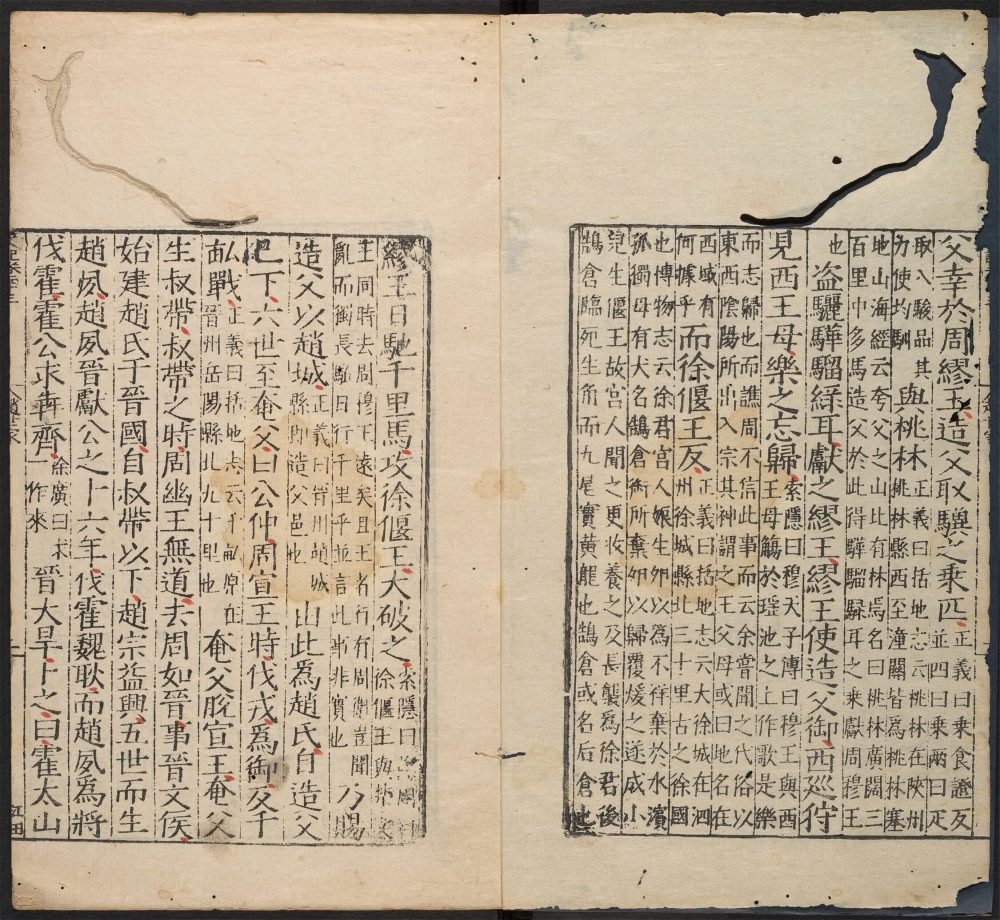 父幸於周繆王造父取驥之乘匹
正義曰乘食證反
並四曰乘兩曰疋
取八駿品其
力使均馴
與桃林
正義曰括地志云桃林在陜州
桃林縣西至潼關皆為桃林塞
地山海經云夸父之山北有林焉名曰桃林廣闊三
百里中多馬造父於此得驊騮騄耳之乘獻周穆王
也
盗驪驊騮綠耳獻之繆王繆王使造父御西巡狩
見西王母樂之忘歸
索隱曰穆天子傳曰穆王與西
王母觴於瑤池之上作歌是樂
而志歸也而譙周不信此事而云余嘗聞之代俗以
東西陰陽所出入宗其神謂之王父母或曰地名在
西域有
何據乎
而徐偃王反
正義曰括地志云大徐城在泗
州徐城縣北三十里古之徐國
也博物志云徐君宮人娠生卵以為不祥棄於水濱
孤獨母有犬名鵠倉銜所棄卵以歸覆煖之遂成小
兒生偃王故宮人聞之更收養之及長襲為徐君後
鵠倉臨死生角而九尾實黃龍也鵠倉或名后倉也
繆王日馳千里馬攻徐偃王大破之
索隱曰譙周曰
徐偃王與楚文
王同時去周穆王遠矣且王者行有周衛豈聞
亂而獨長驅日行千里乎並言此事非實也
乃賜
造父以趙城
正義曰晉州趙城
縣即造父邑也
由此為趙氏自造父
已下六世至奄父曰公仲周宣王時伐戎為御及千
畝戰
正義曰括地志云千畝原在
晉州岳陽縣北九十里也
奄父脫宣王奄父
生叔帶叔帶之時周幽王無道去周如晉事晉文侯
始建趙氏于晉國自叔帶以下趙宗益興五世而生
趙夙趙夙晉獻公之十六年伐霍魏耿而趙夙為將
伐霍霍公求犇齊
徐廣曰求
一作來
晉大旱卜之曰霍太山